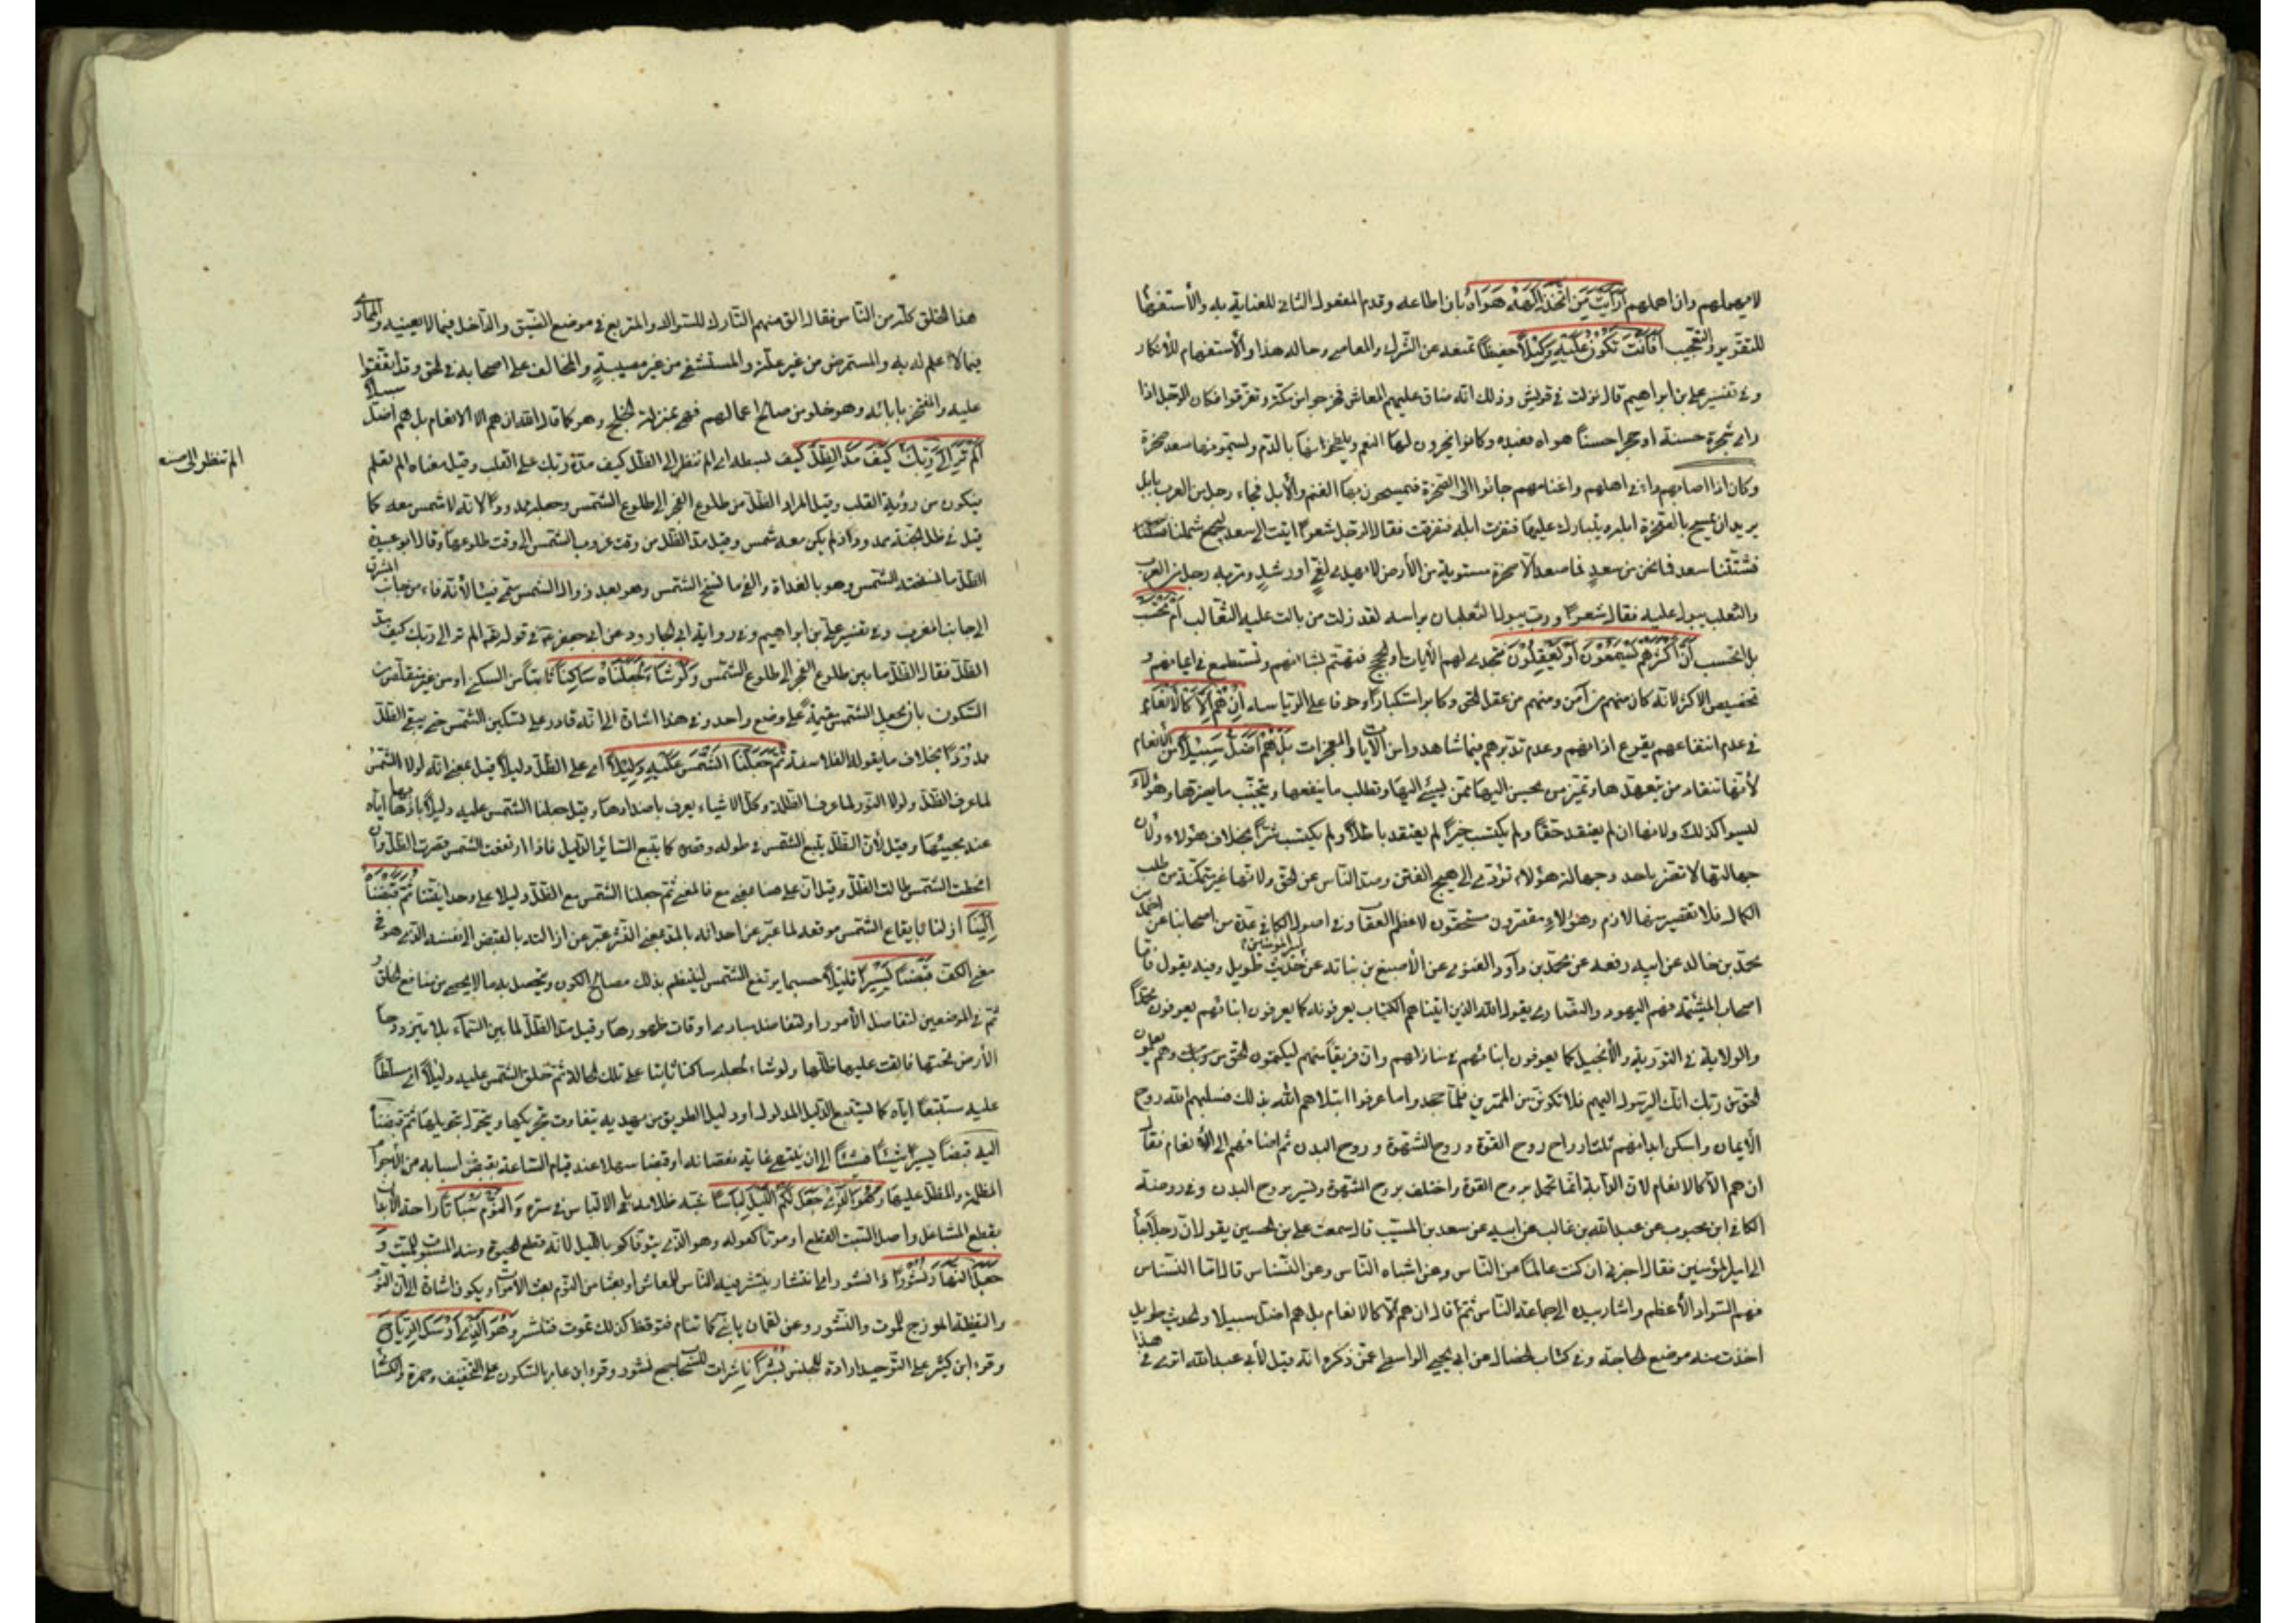 لا يهملهم وان اهملهم أَرَأَيْتَ مَنِ اتَّخَذَ إِلَهَهُ هَوَاهُ بان اطاعه وقدم المفعول الثاني للعناية به والأستفهام
للتقرير والتعجيب أَفَأَنْتَ تَكُونُ عَلَيْهِ وَكِيلاً حفيظاً تمنعه عن الشرك والمعاصي وحاله هذا والأستفهام للأنكار
وفي تفسير علي بن ابراهيم قال نزلت في قريش وذلك انه ضاق عليهم المعاش فخرجوا من مكة وتفرقوا فكان الرجل اذا
راى شجرة حسنة او حجرا حسناً هواه فعبده وكانوا ينحرون لها النعم ويلطخونها بالدم ويسمونها سعد صخرة
وكان اذا اصابهم داء في اهلهم واغنامهم جاؤا الى الصخرة فيمسحون بها الغنم والأبل فجاء رجل من العرب بابل
يريد ان يمسح بالصخرة ابله ويتبارك عليها فنفرت ابله فتفرقت فقال الرجل شعراً اتيت الى سعد ليجمع شملنا
فشتتنا سعد فما نحن من سعدٍ فما سعد الا صخرة مستوية من الأرض لا يهدي لغيٍّ او رشدٍ ومر به رجل من العرب
والثعلب يبول عليه فقال شعراً ورب يبول الثعلبان براسه لقد ذلت من بالت عليه الثعالب أَمْ تَحْسَبُ
بل اتحسب أَنَّ أَكْثَرَهُمْ يَسْمَعُونَ أَوْ يَعْقِلُونَ فتجدي لهم الأيات او الحجج فتهتم بشانهم وتستطمع في ايمانهم و
تخصيص الاكثر لانه كان منهم من آمن ومنهم من عقل الحق وكابر استكباراً وخوفا على الرياسة إِنْ هُمْ إِلَّا كَالْأَنْعَامِ
في عدم انتفاعهم بقرع اذانهم وعدم تدبرهم فيما شاهدوا من الأيات والمعجزات بَلْ هُمْ أَضَلُّ سَبِيلاً من الأنعام
لأنها تنقاد من يتعهدها وتميز من يحسن اليها ممن يسيئ اليها وتطلب ما ينفعها وتتجنب ما يضرها وهؤلاء
ليسوا كذلك ولانها ان لم يعتقد حقاً ولم يكتسب خيراً لم يعتقد باطلاً ولم يكتسب شراً بخلاف هؤلاء ولأن
جهالتها لا تضر باحد وجهالة هؤلاء تؤدي الى هيج الفتن وصد الناس عن الحق ولانها غير متمكنة من طلب
الكمال فلا تقصير منها ولا ذم وهؤلاء مقصرون مستحقون لاعظم العقاب وفي اصول الكافي عدة من اصحابنا عن احمد بن
محمد بن خالد عن ابيه رفعه عن محمد بن داود الغنوي عن الأصبغ بن نباته عن امير المؤمنين حديث طويل وفيه يقول فاما
اصحاب المشئمة فهم اليهود والنصارى يقول الله الذين اتيناهم الكتاب يعرفونه كما يعرفون ابنائهم يعرفون محمداً
والولاية في التورية والأنجيل كما يعرفون ابنائهم في منازلهم وان فريقاً منهم ليكتمون الحق من ربك وهم يعلمون
الحق من ربك انك الرسول اليهم فلا تكونن من الممترين فلما جحدوا ما عرفوا ابتلاهم الله بذلك فسلبهم الله روح
الأيمان واسكن ابدانهم ثلثة ارواح روح القوة وروح الشهوة وروح البدن ثم اضافهم الى الأنعام فقال
ان هم الا كالانعام لان الدابة انما تحمل بروح القوة واختلف بروح الشهوة وتسير بروح البدن وفي روضة
الكافي ابن محبوب عن عبد الله بن غالب عن ابيه عن سعد بن المسيب قال سمعت علي بن الحسين يقول ان رجلاً جاء
الى امير المؤمنين فقال اخبرني ان كنت عالماً عن الناس وعن اشباه الناس وعن النسناس قال اما النسناس
فهم السواد الأعظم واشار بيده الى جماعة الناس ثم قال ان هم الا كالانعام بل هم اضل سبيلا والحديث طويل
اخذت منه موضع الحاجة وفي كتاب الخصال عن ابي يحيى الواسطي عمن ذكره انه قيل لأبي عبد الله اترى في هذا
هذا الخلق كله من الناس فقال الق منهم التارك للسواك والمتربع في موضع الضيق والداخل فيما لا يعنيه والمماري
فيما لا علم له به والمستمرض من غير علة والمستشفي من غير مصيبةٍ والمخالف على اصحابه في الحق وقد اتفقوا
عليه والمفتخر بابائه وهو خلو من صالح اعمالهم فهو بمنزلة الخلنج وهو كما قال الله ان هم الا الانعام بل هم اضل سبيلاً
أَلَمْ تَرَ إِلَى رَبِّكَ كَيْفَ مَدَّ الظِّلَّ كيف بسطه اي الم تنظر الى الظل كيف مده ربك على القلب وقيل معناه الم تعلم
فيكون من رؤية القلب وقيل المراد الظل من طلوع الفجر الى طلوع الشمس وجعله ممدوداً لانه لا شمس معه كما
قيل في ظل الجنة ممدود اذ لم يكن معه شمس وقيل مد الظل من وقت غروب الشمس الى وقت طلوعها وقال ابو عبيدة
الظل ما نسخته الشمس وهو بالغداة والفئ ما نسخ الشمس وهو بعد زوال الشمس سمي فيئا لأنه فاء من جانب المشرق
الى جانب المغرب وفي تفسير علي بن ابراهيم وفي رواية ابي الجارود عن ابي جعفر في قوله الم تر الى ربك كيف مد
الظل فقال الظل ما بين طلوع الفجر الى طلوع الشمس وَلَوْ شَاءَ لَجَعَلَهُ سَاكِناً ثابتاً من السكنى او من غير متقلص من
السكون بان يجعل الشمس مقيمةً على وضع واحد وفي هذا اشارة الى انه قادر على تسكين الشمس حتى يبقى الظل
ممدوداً بخلاف ما يقوله الفلاسفة ثُمَّ جَعَلْنَا الشَّمْسَ عَلَيْهِ دَلِيلاً اى على الظل دليلاً قيل يعني انه لولا الشمس
لما عرف الظل ولولا النور لما عرف الظلمة وكل الاشياء يعرف باضدادها وقيل جعلنا الشمس عليه دليلاً باذهابها اياه
عند مجيئها وقيل لأن الظل يتبع الشمس في طوله وقصره كما يتبع السائر الدليل فاذا ارتفعت الشمس قصرت الظل وان
انحطت الشمس طالت الظل وقيل ان على هنا بمعنى مع فالمعنى ثم جعلنا الشمس مع الظل دليلا على وحدانيتنا ثُمَّ قَبَضْنَاهُ
إِلَيْنَا ازلناه بايقاع الشمس موقعه لما عبر عن احداثه بالمد بمعنى النشر عبر عن ازالته بالقبض الى نفسه الذي هو في
معنى الكف قَبْضاً يَسِيراً قليلاً حسبما يرتفع الشمس لينتظم بذلك مصالح الكون ويتحصل به ما لا يحصى من منافع الخلق و
ثم في الموضعين لتفاضل الأمور او لتفاضل مبادى اوقات ظهورها وقيل مد الظل لما بين السماء بلا نير ودحا
الأرض تحتها فالقت عليها ظلها ولو شاء لجعله ساكنا ثابتا على تلك الحالة ثم خلق الشمس عليه دليلاً اى مسلطاً
عليه مستتبعاً اياه كما يستتبع الدليل المدلول او دليل الطريق من يهديه يتفاوت بحركتها ويتحول بتحويلها ثم قبضناه
الينا قبضاً يسيراً شيئاً فشيئاً الى ان ينتهى غاية نقصانه او قبضا سهلا عند قيام الساعة بقبض اسبابه من الأجرام
المظلمة والمظل عليها وَهُوَ الَّذِي جَعَلَ لَكُمُ اللَّيْلَ لِبَاساً شبه ظلامه باللباس في ستره وَالنَّوْمَ سُبَاتاً راحة للأبدان
بقطع المشاغل واصل السبت القطع او موتا كقوله وهو الذي يتوفاكم بالليل لانه قطع الحيوة ومنه المسبوت للميت وَ
جَعَلَ النَّهَارَ نُشُوراً ذا نشور اى انتشار ينتشر فيه الناس للمعاش او بعثا من النوم بعث الأموات ويكون اشارة الى ان النوم
واليقظة انموذج للموت والنشور وعن لقمان يا بني كما تنام فتوقظ كذلك تموت فتنشر وَهُوَ الَّذِي أَرْسَلَ الرِّيَاحَ
وقرء ابن كثير على التوحيد ارادة للجنس نُشُراً ناشرات للسحاب جمع نشور وقرء ابن عامر بالسكون على التخفيف وحمزة والكسائي
الم تنظر الى صنعه